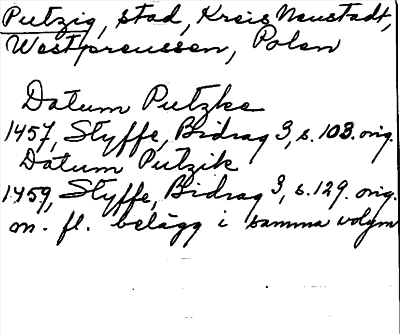 Putzig, stad, Kreis Neustadt,
Westpreussen, Polen
Datum Putzke
1457, Styffe, Bidrag 3, s. 103. orig.
Datum Putzik
1459, Styffe, Bidrag 3, s. 129. orig.
m. fl. belägg i samma volym